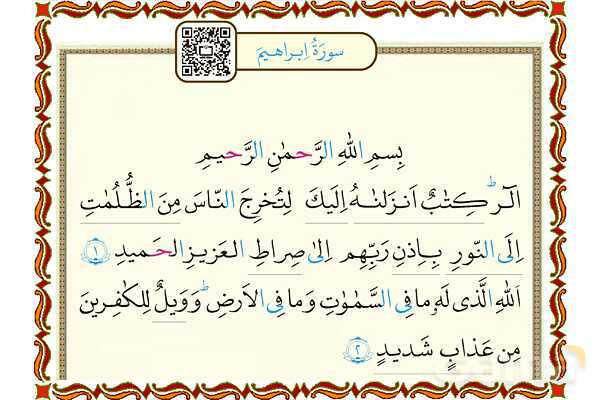 سورَةُ اِبراهیمَ
بِسمِ اللهِ الرَّحمٰنِ الرَّحیمِ
الٓرٰ ۚ کِتٰبٌ اَنزَلنٰهُ اِلَیكَ لِتُخرِجَ النّاسَ مِنَ الظُّلُمٰتِ
اِلَی النّورِ بِاِذنِ رَبِّهِم اِلیٰ صِراطِ العَزیزِ الحَمیدِ ﴿۱﴾
اَللهِ الَّذی لَهٗ ما فِی السَّمٰوٰتِ وَ ما فِی الاَرضِ ؕ وَ وَیلٌ لِلکٰفِرینَ
مِن عَذابٍ شَدیدٍ ﴿۲﴾